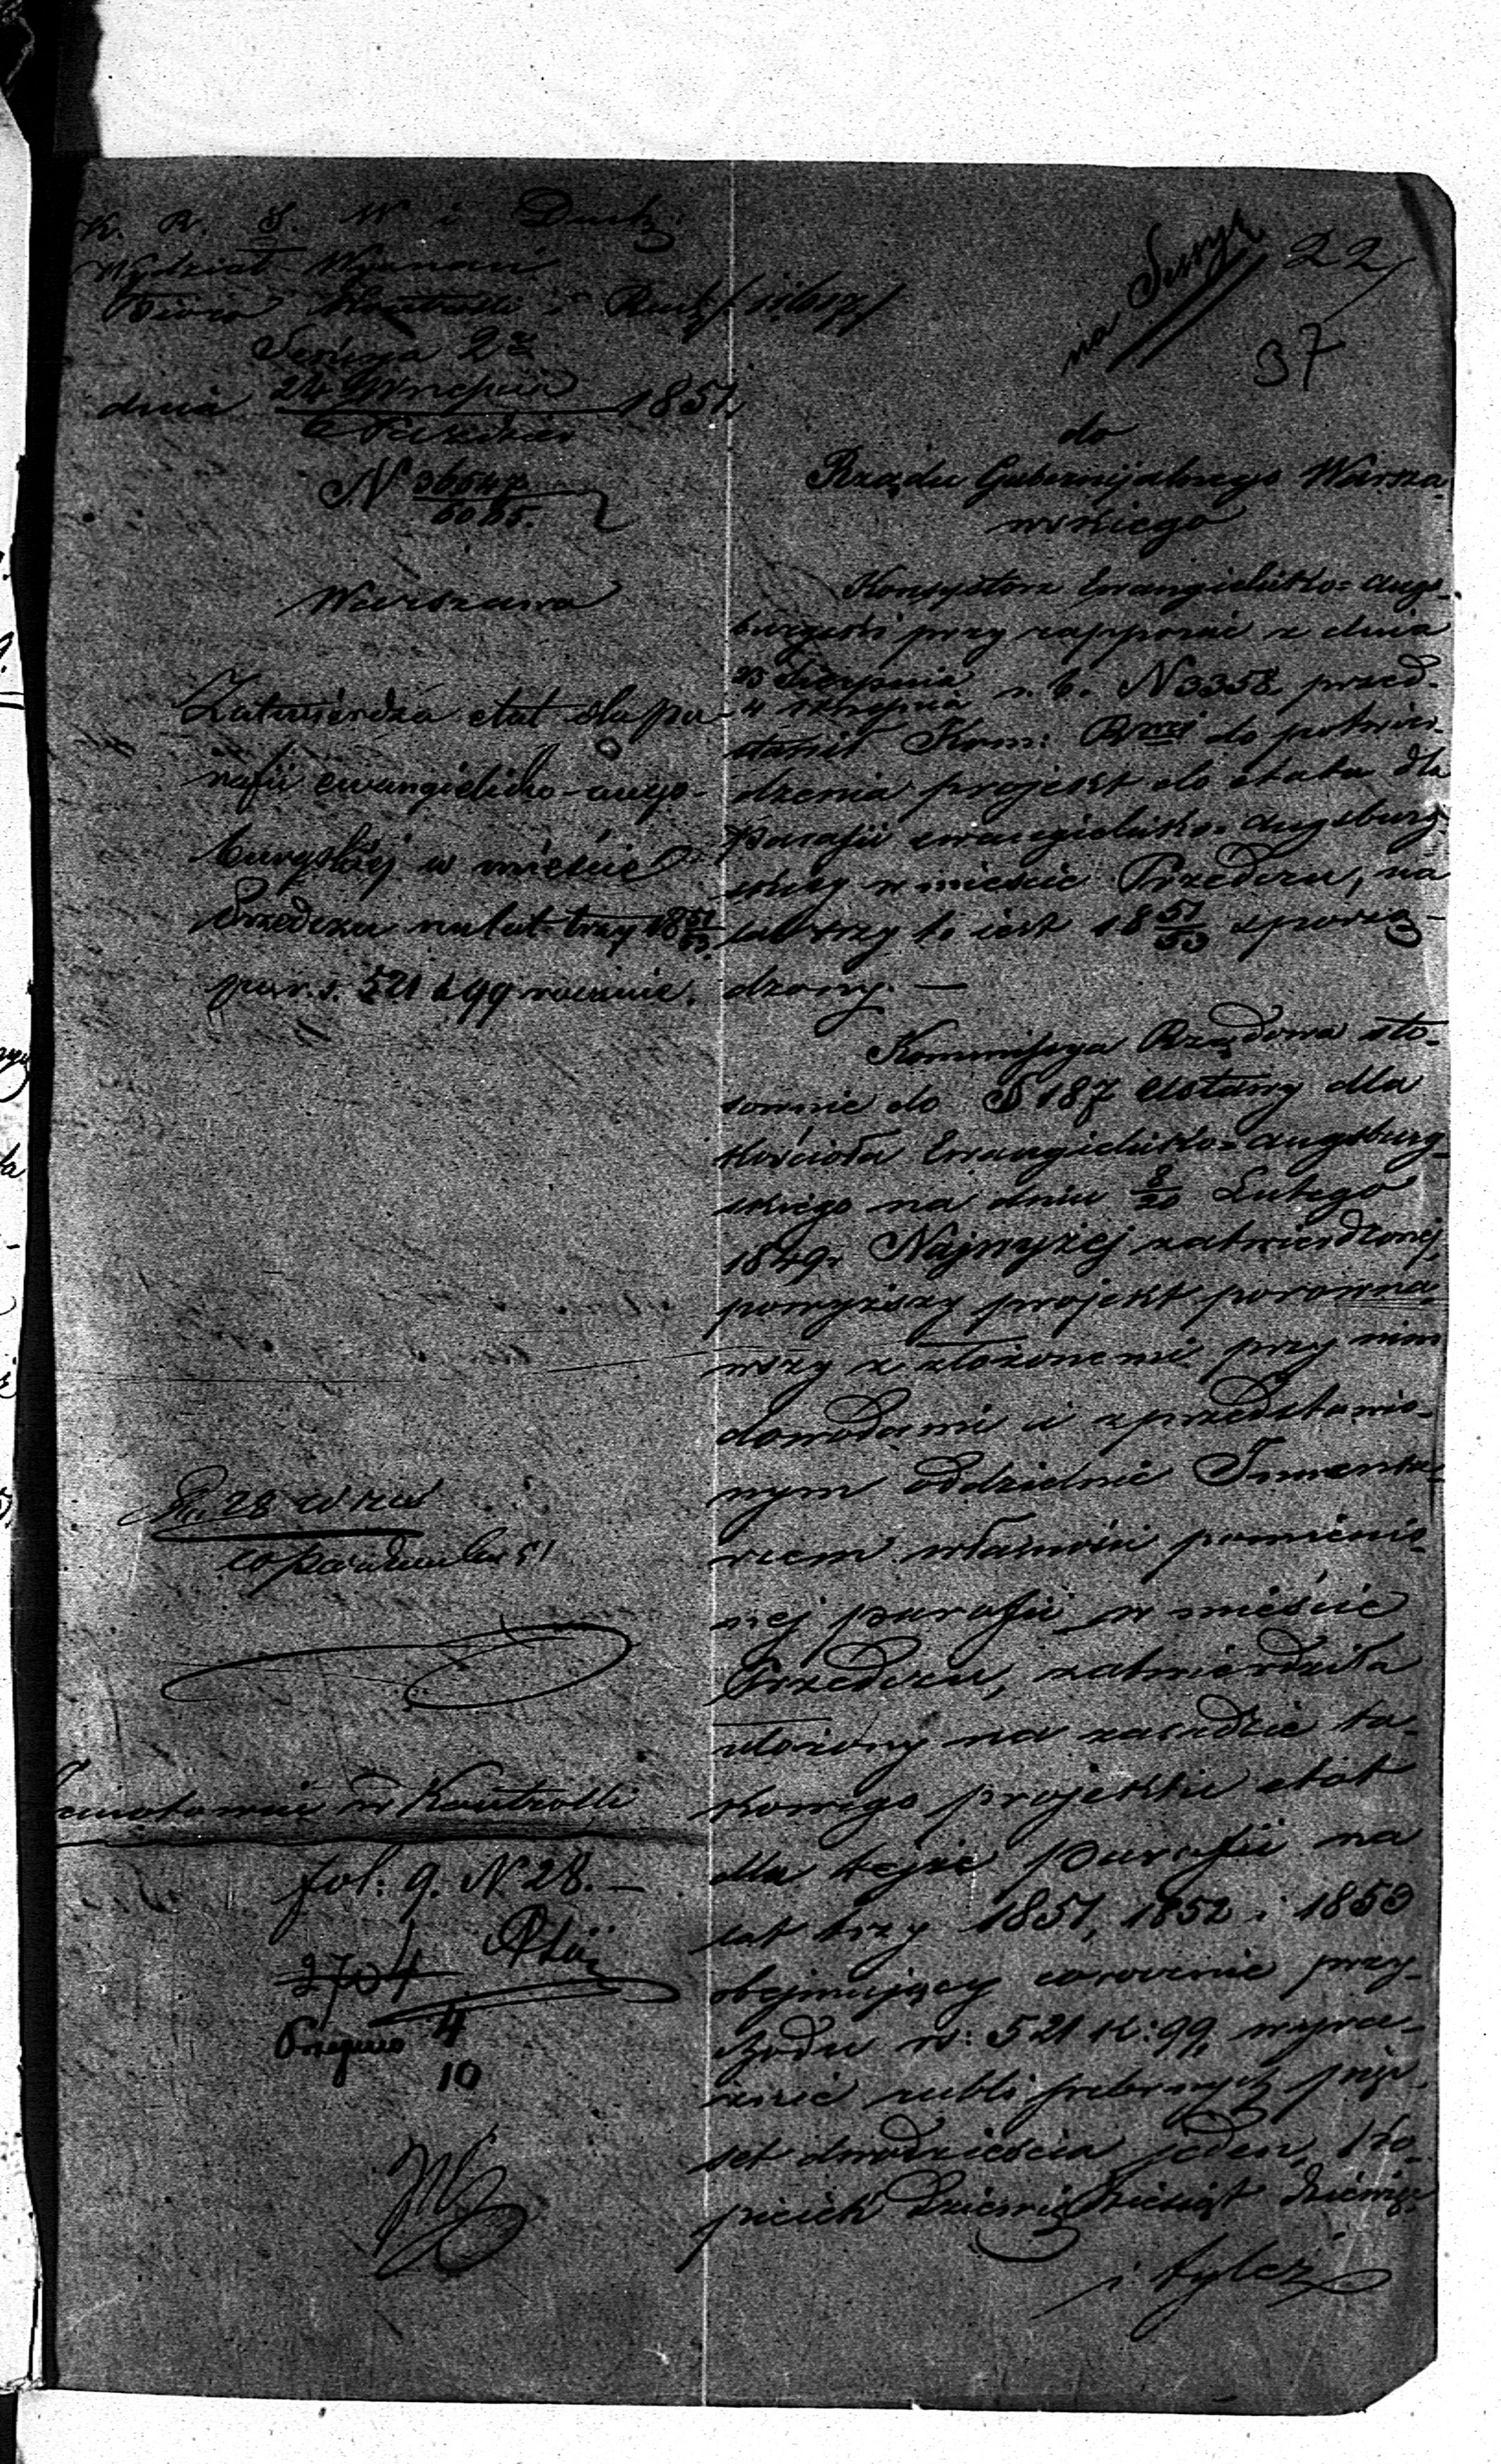 K. R. S. W. i Duch:
Wydział Wyznań
Sekcya 2a
dnia 24 Września 1851
Października
N 36547
Warszawa
Zatwierdza etat dla pa-
rafii ewangielicko-augs-
burgskiéj w mieście
Przedczu na lat trzy 18 51/53
po r.s. 521 k 99 rocznie.
fol: 9. N. 28. —
2704
4
10
na Sessyą
22
37
do
Rządu Gubernijalnego Warsza-
wskiego
Konsystorz Ewangielicko-Augs-
burgski przy rapporcie z dnia
r. b. N 3358 przed-
stawił Kom: Rzwej do potwier-
dzenia projekt do etatu dla
Parafii ewangielicko-augsburg-
skiej w mieście Przedczu, na
lat trzy to iest 18 51/53 sporzą-
dzony. —
Kommissya Rządowa sto-
sownie do § 187 Ustawy dla
Kościoła Ewangielicko-Augsburg-
skiego na dniu 8/20 Lutego
1849r. Najwyżej zatwierdzonej,
powyższy projekt porówna-
wszy z złożonemi przy nim
dowodami i z przedstawio-
nym oddzielnie Inwenta-
rzem własności pomienio-
nej parafii w mieście
Przedczu, zatwierdziła
ułożony na zasadzie ta-
kowego projektu etat
dla tejże Parafii na
lat trzy 1851, 1852 i 1853
obejmujący corocznie przy-
chodu rs: 521 k: 99, wyra-
źnie rubli srebrnych pięć-
set dwadzieścia jeden, ko-
piejek dziewięćdziesiąt dziewięć
i tyleż